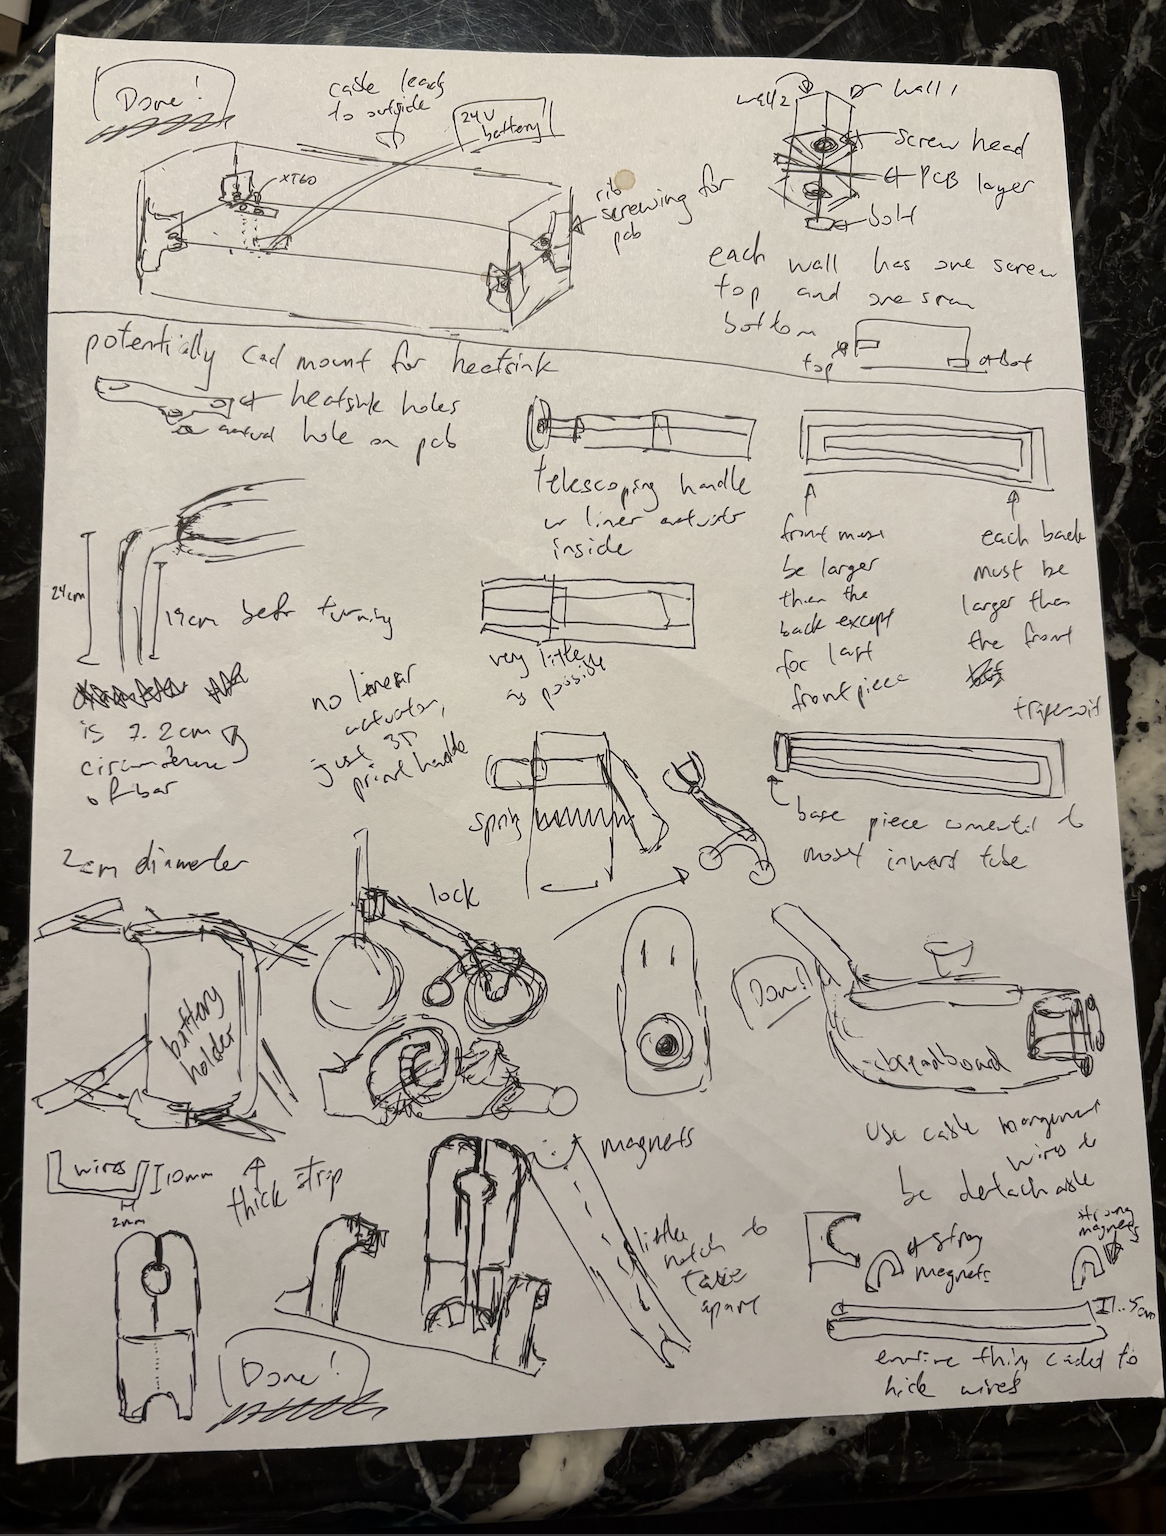 Done!
cable leads
to outside
24V
battery
XT60
rib
screwing for
pcb
wall2
wall 1
screw head
PCB layer
bolt
each wall has one screw
top and one screw
bottom
top
bot
potentially cad mount for heatsink
heatsink holes
actual hole on pcb
telescoping handle
w liner actuator
inside
front must
be larger
then the
back except
for last
front piece
each back
must be
larger than
the front
24cm
19cm before turning
very little
as possible
is 7.2cm
circumference
of bar
no linear
actuator,
just 3D
print handle
trapezoid
spring
base piece connected to
most inward tube
2cm diameter
lock
battery
holder
Done!
breadboard
use cable management
wires to
be detachable
wires
10mm
2mm
thick strip
magnets
little
notch to
take
apart
strong
magnets
strong
magnets
1.5cm
entire thing caded to
hide wires
Done!